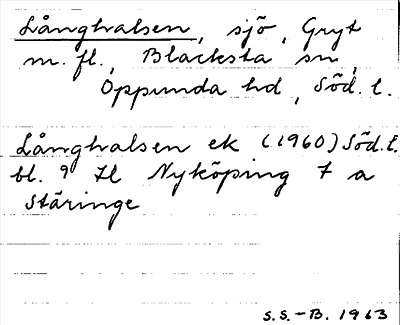 Långhalsen, sjö, Gryt
m. fl., Blacksta sn,
Oppunda hd, Söd. l.
Långhalsen ek (1960) Söd. l.
bl. 9 H Nyköping 7 a
Stäringe
S.S.-B. 1963